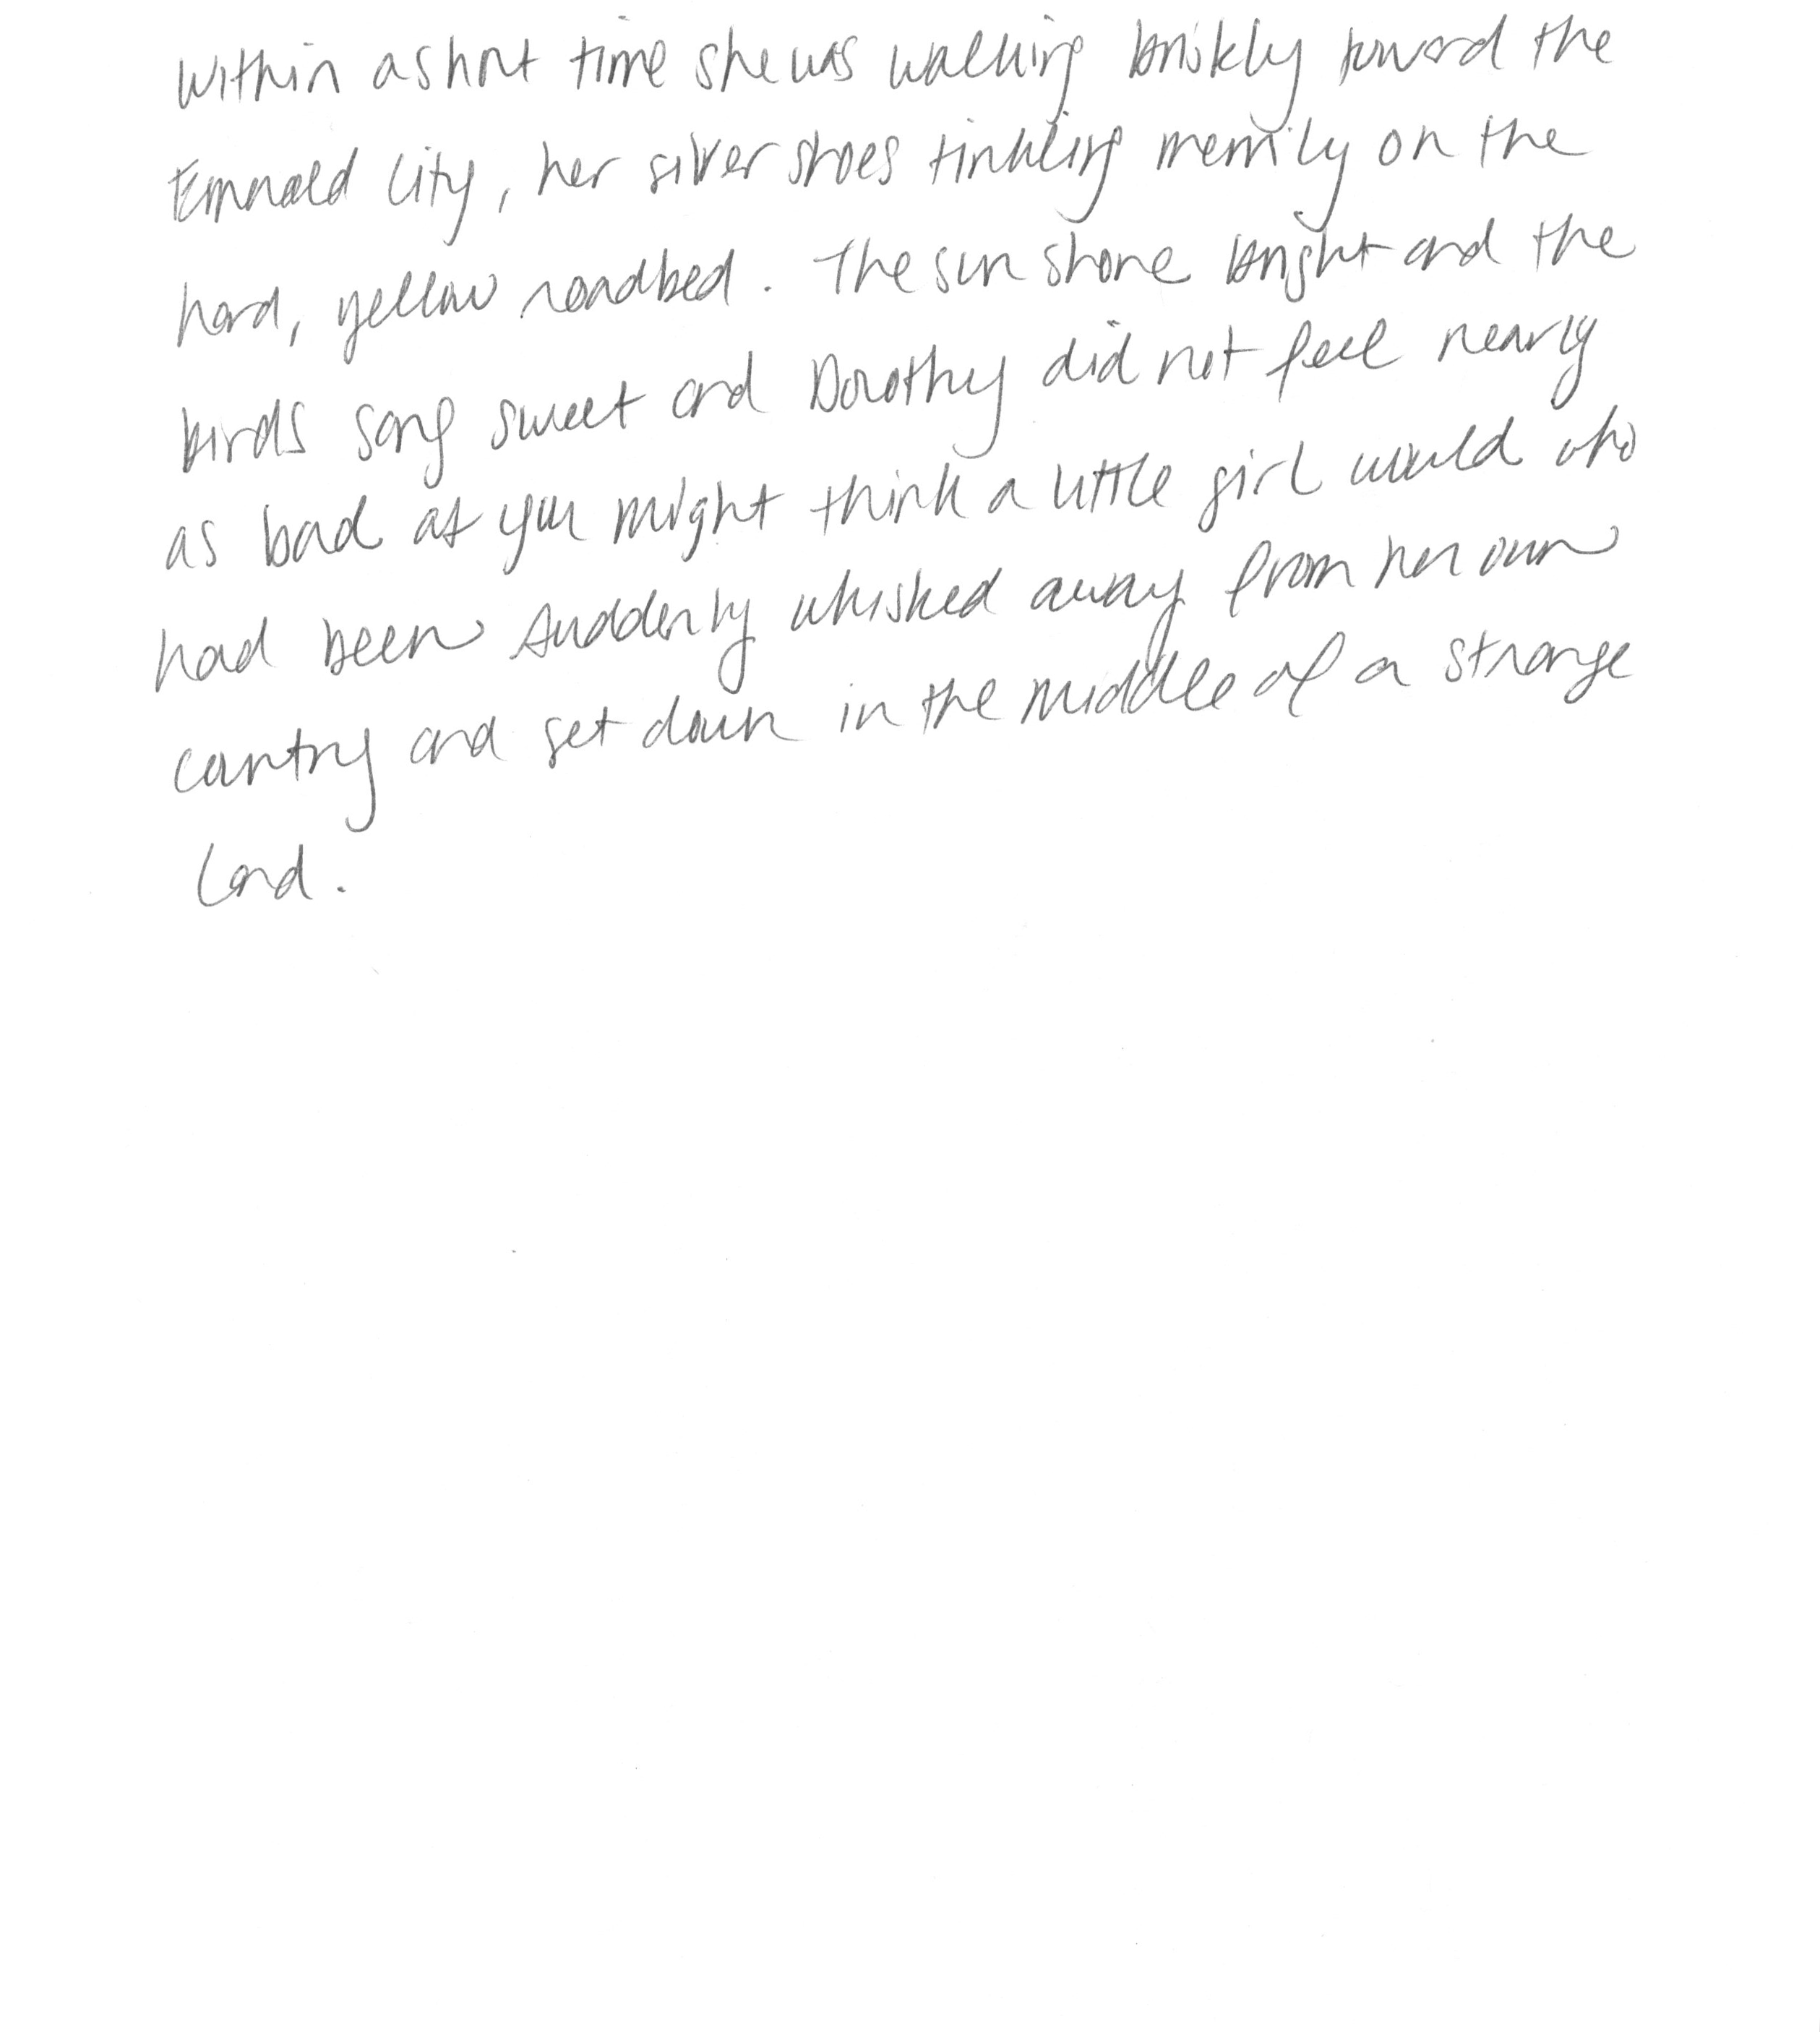 Within a short time she was walking briskly toward the
Emerald City, her silver shoes tinkling merrily on the
hard, yellow roadbed. The sun shone bright and the
birds sang sweet and Dorothy did not feel nearly
as bad as you might think a little girl would who
had been suddenly whisked away from her own
country and set down in the middle of a strange
land.